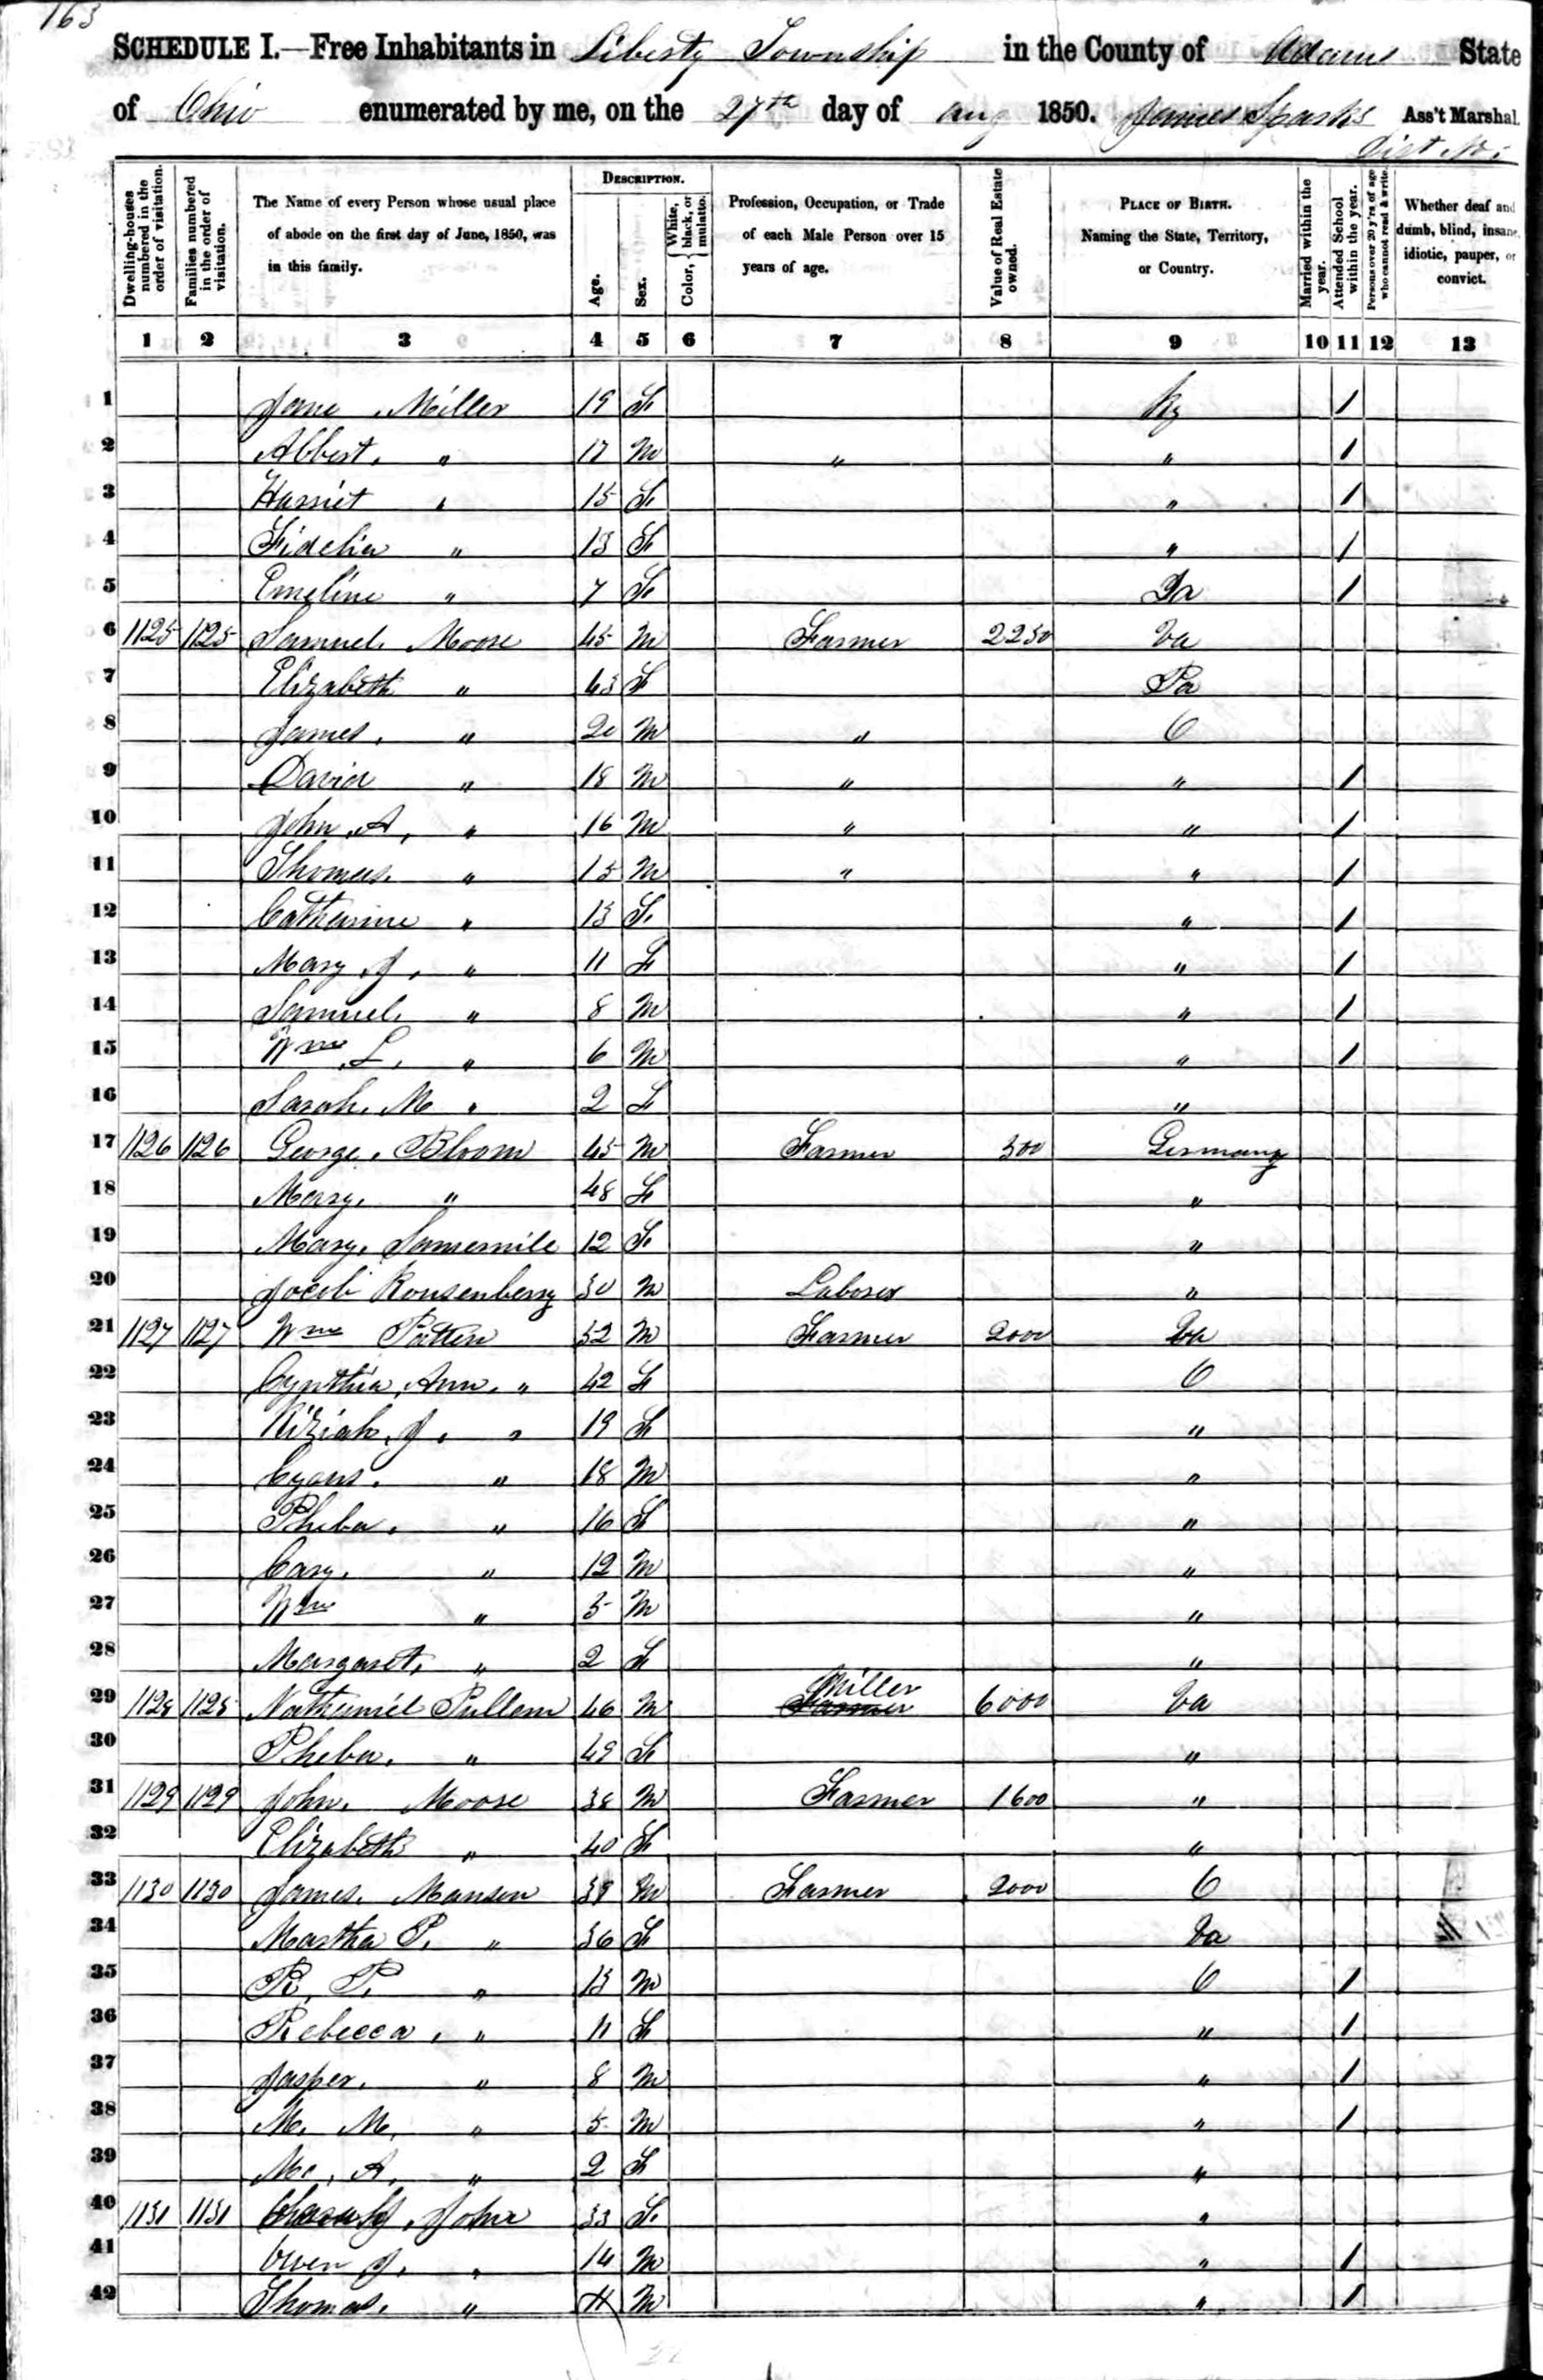 163
SCHEDULE I.—Free Inhabitants in Liberty Township in the County of Adams State
of Ohio enumerated by me, on the 27th day of Aug 1850. James Sparks Ass't Marshal.
Dist No.
Dwelling-houses numbered in the order of visitation.
Families numbered in the order of visitation.
The Name of every Person whose usual place of abode on the first day of June, 1850, was in this family.
DESCRIPTION.
Age.
Sex.
Color, White, black, or mulatto.
Profession, Occupation, or Trade of each Male Person over 15 years of age.
Value of Real Estate owned.
PLACE OF BIRTH. Naming the State, Territory, or Country.
Married within the year.
Attended School within the year.
Persons over 20 y'rs of age who cannot read & write.
Whether deaf and dumb, blind, insane, idiotic, pauper, or convict.
1 2 3 4 5 6 7 8 9 10 11 12 13
1 Jane Miller 19 F Ky 1
2 Albert " 17 M " " 1
3 Harriet " 15 F " 1
4 Fidelia " 13 F " 1
5 Emeline " 7 F 1
6 1125 1125 Samuel Moore 45 M Farmer 2250 Va
7 Elizabeth " 43 F Pa
8 James " 20 M " O
9 David " 18 M " " 1
10 John A, " 16 M " " 1
11 Thomas " 15 M " " 1
12 Catharine " 13 F " 1
13 Mary J. " 11 F " 1
14 Samuel " 8 M " 1
15 Wm L. " 6 M " 1
16 Sarah M " 2 F "
17 1126 1126 George Bloom 45 M Farmer 500 Germany
18 Mary " 48 F "
19 Mary 12 F "
20 Jacob Rousenberry 30 M Laborer "
21 1127 1127 Wm Patten 52 M Farmer 2000 Va
22 Cynthia Ann " 42 F O
23 Kiziah J. " 19 F "
24 Cyrus " 18 M "
25 Pheba " 16 F "
26 Cary " 12 M "
27 Wm " 5 M "
28 Margaret " 2 F "
29 1128 1128 Nathaniel Pullem 46 M Miller Farmer 6000 Va
30 Pheba " 49 F "
31 1129 1129 John Moore 38 M Farmer 1600 "
32 Elizabeth " 40 F "
33 1130 1130 James Manson 39 M Farmer 2000 O
34 Martha P. " 36 F Va
35 R. P. " 13 M O 1
36 Rebecca " 11 F " 1
37 Jasper " 8 M " 1
38 M. M. " 5 M " 1
39 Mc. A. " 2 F "
40 1131 1131 33 F "
41 Owen J. " 14 M " 1
42 Thomas " 11 M " 1